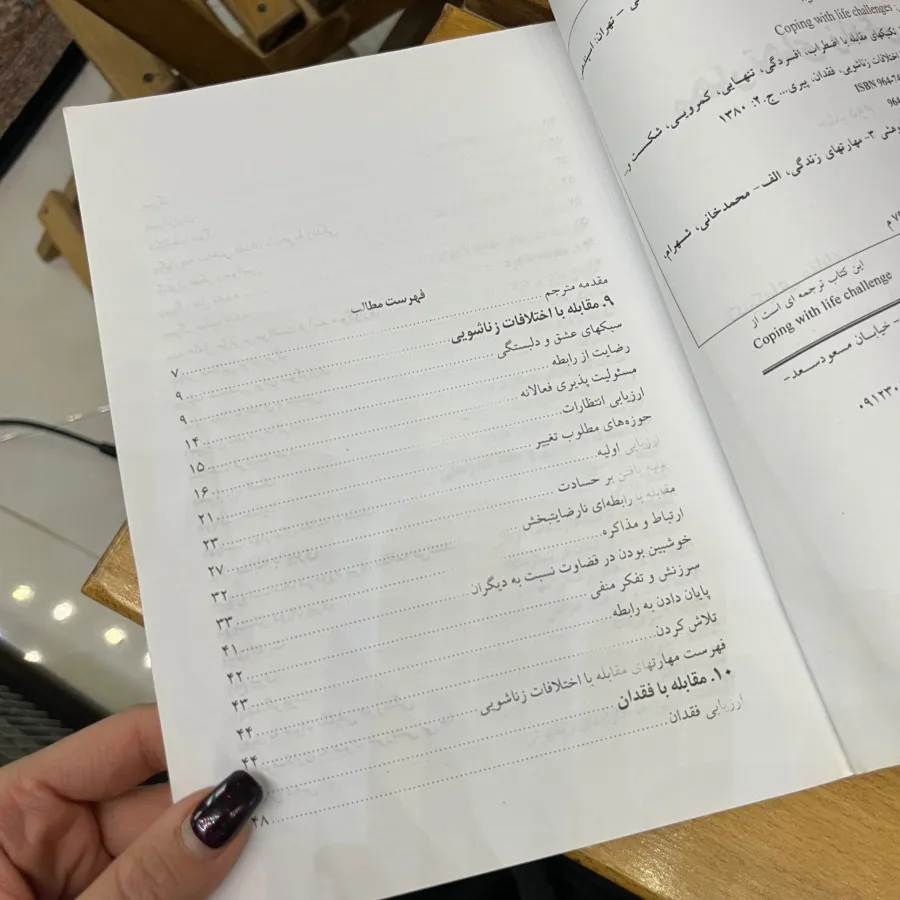 تهران:
Coping with life challenges
تکنیکهای مقابله با اضطراب، افسردگی، تنهایی، کمرویی، شکست و...
اختلافات زناشویی، فقدان، پیری... ج.۲: ۱۳۸۰
ISBN 964-7
964
۳-مهارتهای زندگی، الف- محمدخانی، شهرام،
م
این کتاب ترجمه ای است از
Coping with life challenge
- خیابان مسعودسعد-
۰۹۱۲۳۰
فهرست مطالب
مقدمه مترجم ........ ۷
۹. مقابله با اختلافات زناشویی ........ ۹
سبکهای عشق و دلبستگی ........ ۹
رضایت از رابطه ........ ۱۴
مسئولیت پذیری فعالانه ........ ۱۵
ارزیابی انتظارات ........ ۱۶
حوزه‌های مطلوب تغییر ........ ۲۱
ارزیابی اولیه ........ ۲۳
غلبه یافتن بر حسادت ........ ۲۷
مقابله با رابطه‌ای نارضایتبخش ........ ۳۲
ارتباط و مذاکره ........ ۳۳
خوشبین بودن در قضاوت نسبت به دیگران ........ ۴۱
سرزنش و تفکر منفی ........ ۴۲
پایان دادن به رابطه ........ ۴۳
تلاش کردن ........ ۴۴
فهرست مهارتهای مقابله با اختلافات زناشویی ........ ۴۴
۱۰. مقابله با فقدان ........
ارزیابی فقدان ........ ۴۸